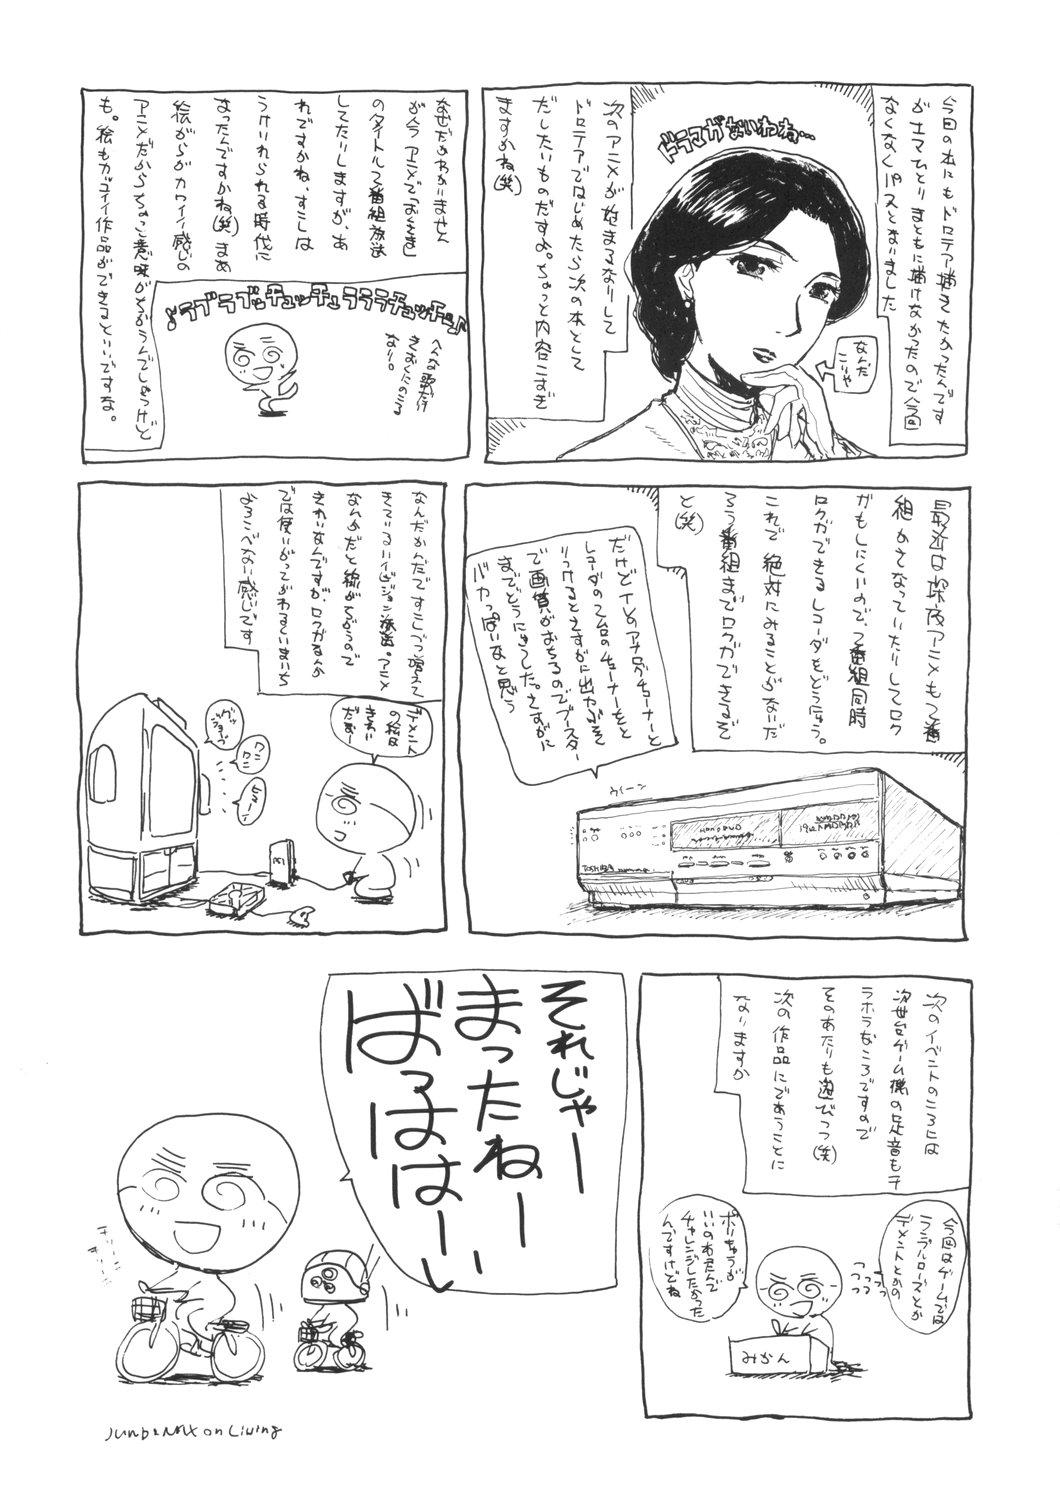 今回の本にもドロテア描きたかったんです
が土マひとりまともに描けなかったので今回
なくなくパスとなりました
ドラマがないわね…
なんだ
こいや
次のアニメが始まるなりして
ドロテアではじめたら次の本として
だしたいものだすよ。ちょっと内容こすぎ
ますかね(笑)
なぜだかわかりません
が今アニメで
のタイトルで番組放送
してたりしますが、あ
れですかね、すこしは
うけいれられる時代に
なったんですかね(笑)まあ
絵がらがカワイイ感じの
アニメだからちょっと意味がちがうんでしょうけど
も。絵もカッコイイ作品ができるといいですな。
♪ラブラブチュッチュラララチュッチュ♪
へんな歌だけ
きおくにのこる
なり。
最近は深夜アニメも2番
組かさなっていたりしてロク
ガもしにくいので、2番組同時
ロクガできるレコーダをどうにゅう。
これで絶対にみることがないだ
ろう番組までロクガできるぞ
と(笑)
だけどTVのアナログチューナーと
レコーダの2台のチューナーをと
りつけるとさすがに出力ぶそく
で画質がおちるのでブースター
までどうにゅうした。さすがに
バカっぽいなと思う
ウィーン
TOSHIBA
なんだかんだですこしづつ増えて
きているハイビジョン放送。アニメ
なんかだと線がちがうので
きれいなんですが、ロクガなんか
では使いがってがわるくいまいち
よろこべない感じです
デメント
の絵は
きれい
だなー
グッ
ジョーブ
ワン
ワン
ヒューン
次のイベントのころには
次世代ゲーム機の足音もチ
ラホラなころですので
そのあたりも遊びつつ(笑)
次の作品にであうことに
なりますか
今回はゲームでは
ランブルローズとか
デメントとかの
つつつ
つつつ
ポリもちっが
いいのおたんで
チャレンジしたかった
んですけどね
みかん
それじゃー
まったねーい
ばっははーい
JUNB&NAX on Living